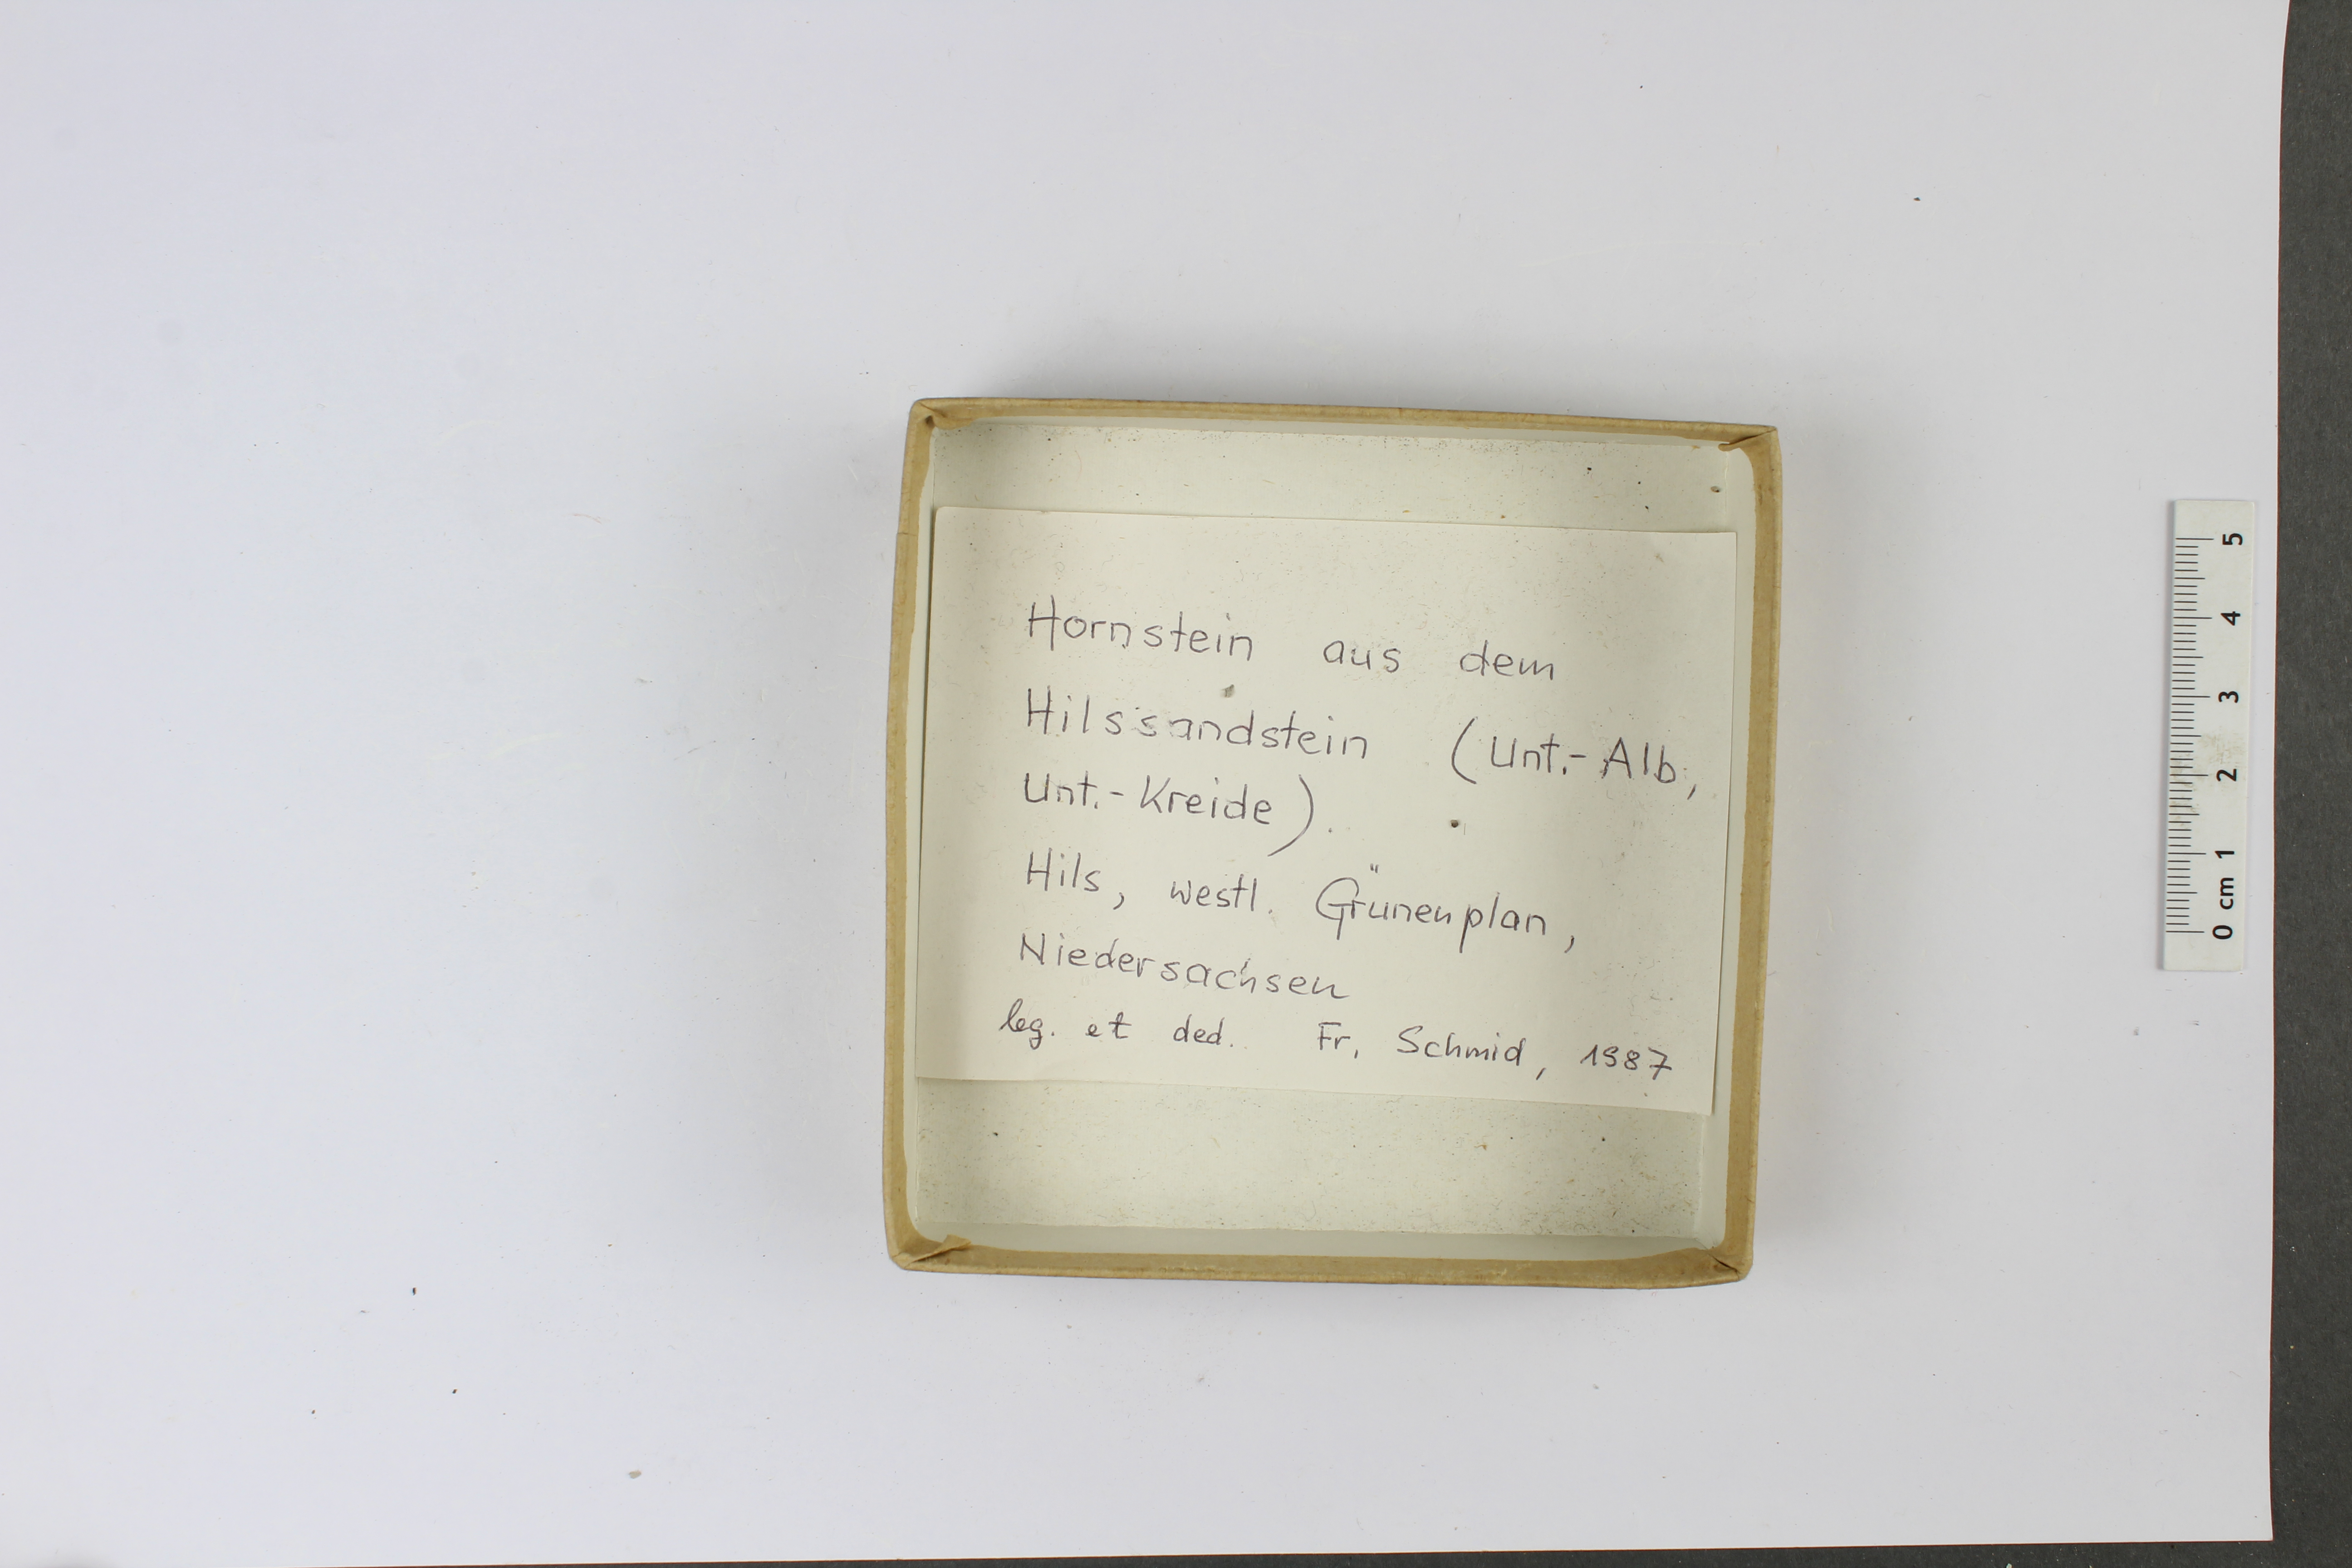 Hornstein aus dem
Hilssandstein (Unt.-Alb,
Unt.-Kreide).
Hils, westl. Grünenplan,
Niedersachsen
leg. et ded. Fr. Schmid, 1987
0 cm 1 2 3 4 5